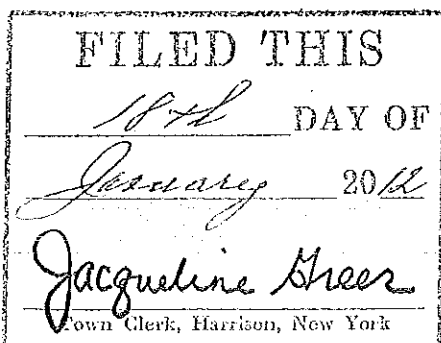 FILED THIS
18th DAY OF
January 2012
Jacqueline Greer
Town Clerk, Harrison, New York